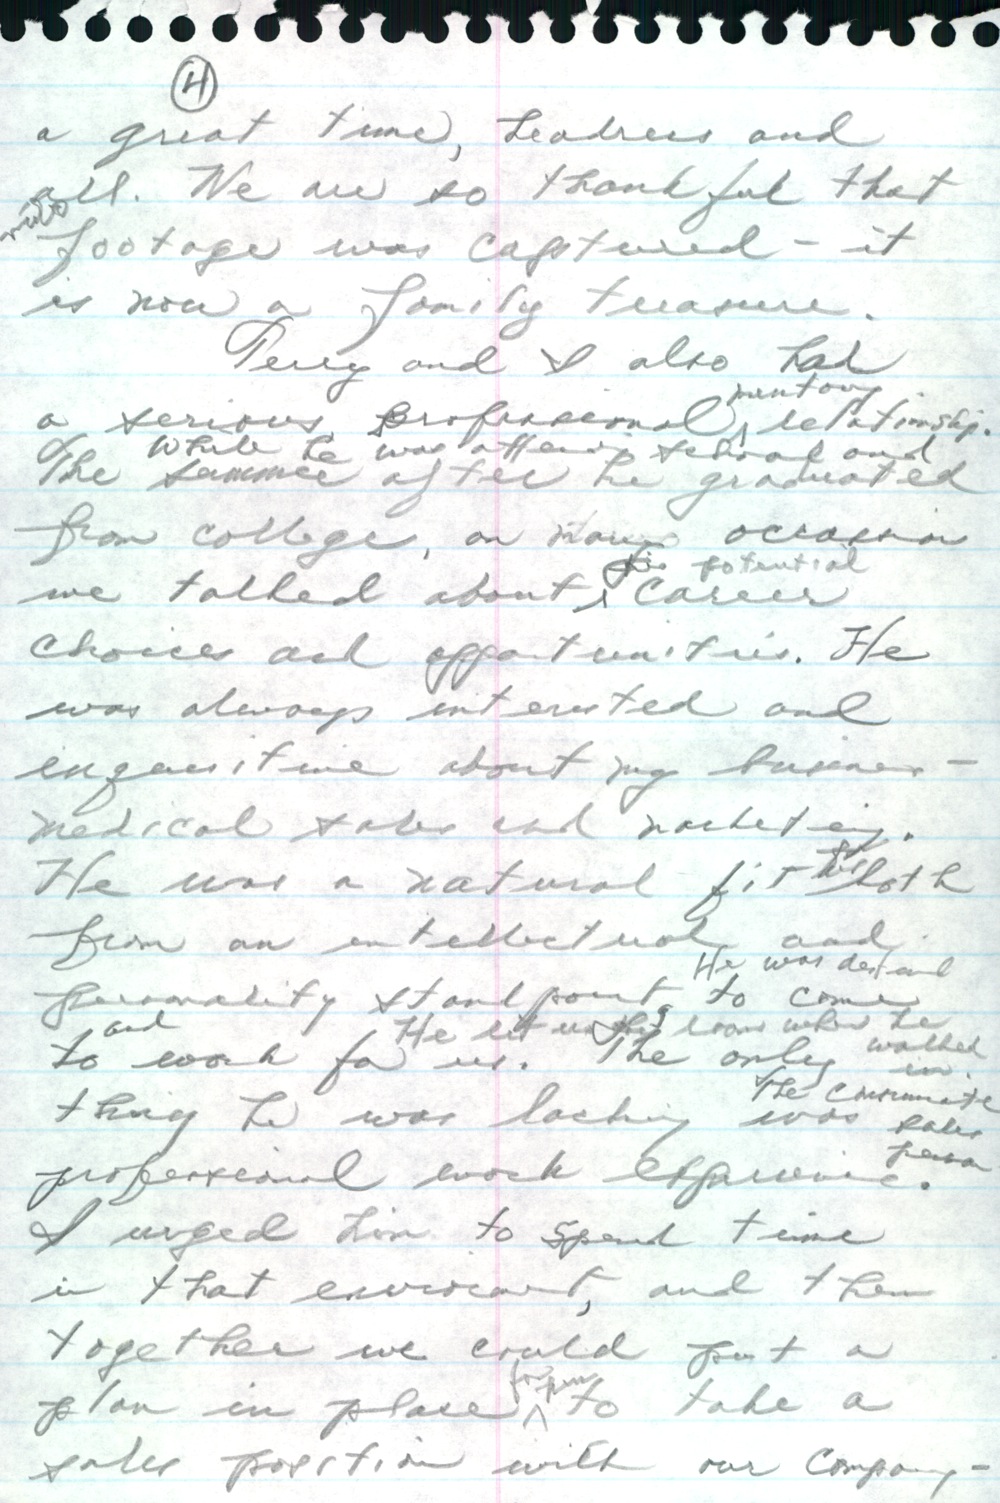 4
a great time, headress and
all. We are so thankful that
video
footage was captured - it
is now a family treasure.
Perry and I also had
mentoring
a serious professional relationship.
while he was attending school and
The summer after he graduated
from college, on many occasion
his potential
we talked about career
choices and opportunities. He
was always interested and
inquisitive about my business -
medical sales and marketing.
He was a natural fit both
from an intellectual and
He was destined
personality standpoint, to come
and He lit up the room when he
to work for us. The only walked
in.
thing he was lacking was
the consumate
sales
person
professional work experience.
I urged him to spend time
in that enviroment, and then
together we could put a
for him
plan in place to take a
sales position with our company -